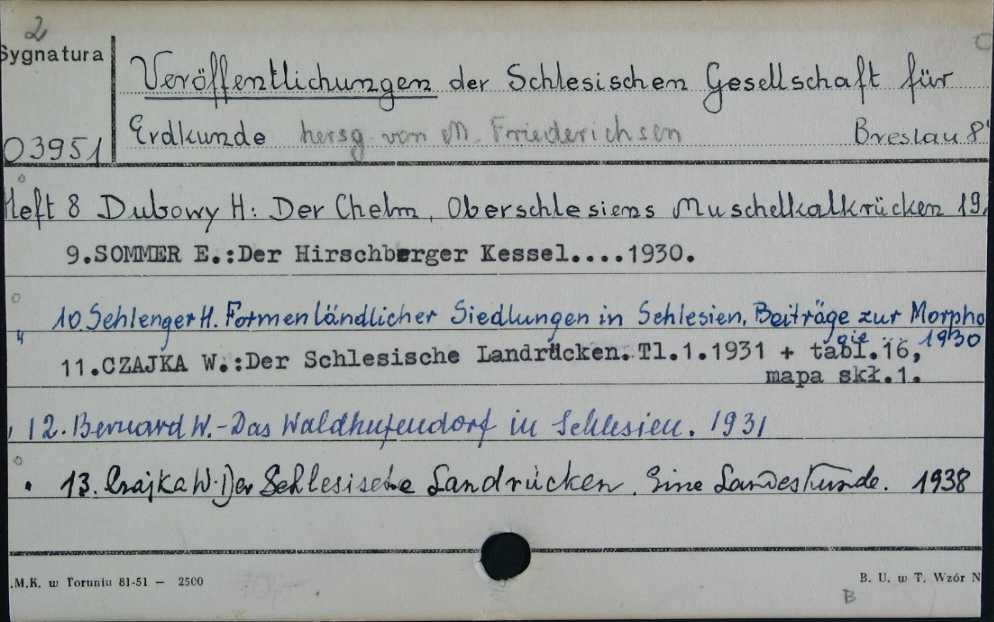 2
Sygnatura
Veröffentlichungen der Schlesischen Gesellschaft für
03951 Erdkunde hersg. von M. Friederichsen Breslau 8°
Heft 8 Dubowy H: Der Chelm, Oberschlesiens Muschelkalkrücken 19
9.SOMMER E.:Der Hirschberger Kessel....1930.
" 10. Schlenger H. Formen ländlicher Siedlungen in Schlesien, Beiträge zur Morpho
gie 1930
11.CZAJKA W.:Der Schlesische Landrücken.Tl.1.1931 + tabl.16,
mapa skł.1.
12. Bernard W.-Das Waldhufendorf in Schlesien. 1931
• 13. Czajka W. Der Schlesische Landrücken. Eine Landeskunde. 1938
.M.K. w Toruniu 81-51 — 2500
B. U. w T. Wzór N
B